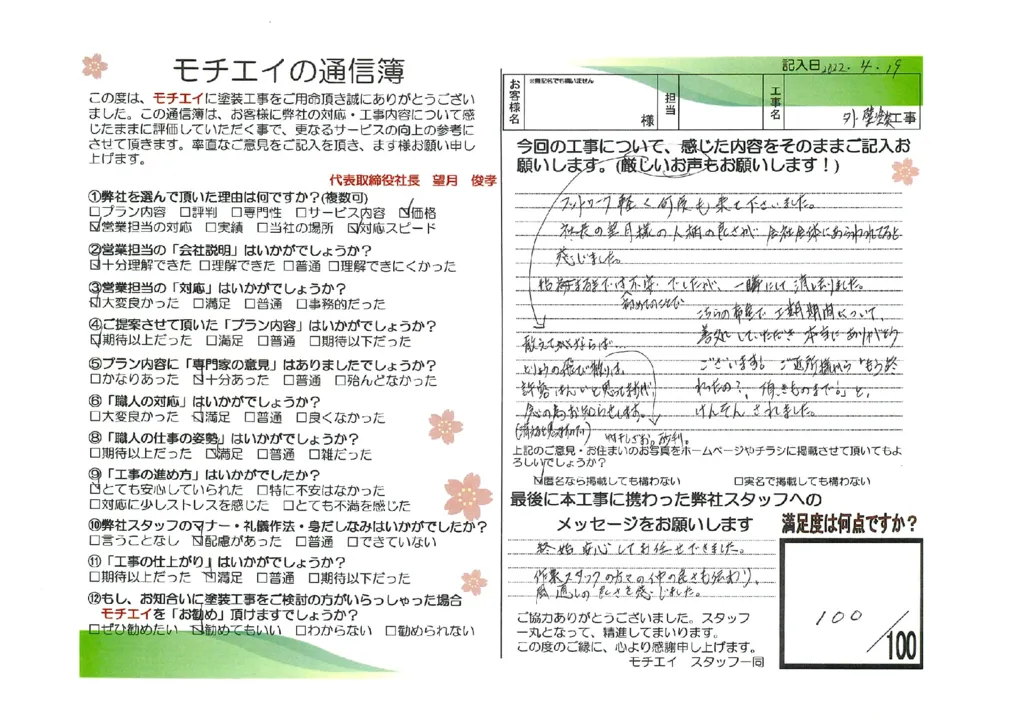 モチエイの通信簿
この度は、モチエイに塗装工事をご用命頂き誠にありがとうござい
ました。この通信簿は、お客様に弊社の対応・工事内容について感
じたままに評価していただく事で、更なるサービスの向上の参考に
させて頂きます。率直なご意見をご記入を頂き、ます様お願い申し
上げます。
代表取締役社長 望月 俊孝
①弊社を選んで頂いた理由は何ですか？(複数可)
□プラン内容 □評判 □専門性 □サービス内容 ☑価格
☑営業担当の対応 □実績 □当社の場所 ☑対応スピード
②営業担当の「会社説明」はいかがでしょうか？
☑十分理解できた □理解できた □普通 □理解できにくかった
③営業担当の「対応」はいかがでしょうか？
☑大変良かった □満足 □普通 □事務的だった
④ご提案させて頂いた「プラン内容」はいかがでしょうか？
☑期待以上だった □満足 □普通 □期待以下だった
⑤プラン内容に「専門家の意見」はありましたでしょうか？
□かなりあった ☑十分あった □普通 □殆んどなかった
⑥「職人の対応」はいかがでしょうか？
□大変良かった ☑満足 □普通 □良くなかった
⑧「職人の仕事の姿勢」はいかがでしょうか？
□期待以上だった ☑満足 □普通 □雑だった
⑨「工事の進め方」はいかがでしたか？
☑とても安心していられた □特に不安はなかった
□対応に少しストレスを感じた □とても不満を感じた
⑩弊社スタッフのマナー・礼儀作法・身だしなみはいかがでしたか？
□言うことなし ☑配慮があった □普通 □できていない
⑪「工事の仕上がり」はいかがでしょうか？
□期待以上だった ☑満足 □普通 □期待以下だった
⑫もし、お知合いに塗装工事をご検討の方がいらっしゃった場合
モチエイを「お勧め」頂けますでしょうか？
□ぜひ勧めたい ☑勧めてもいい □わからない □勧められない
記入日2022.4.19
お客様名
※無記名でも構いません
様
担当
工事名
外壁塗装工事
今回の工事について、感じた内容をそのままご記入お
願いします。(厳しいお声もお願いします！)
フットワーク軽く何度も来て下さいました。
社長の望月様の人柄の良さが会社全体にあらわれてると
感じました。
不安でしたが、一瞬にして消えました。
初めてのことで
こちらの希望で工期期間について、
善処していただき本当にありがとう
ございます！ ご近所様から「もう終
わったの？、
敢えて
上記のご意見・お住まいのお写真をホームページやチラシに掲載させて頂いてもよ
ろしいでしょうか？
☑匿名なら掲載しても構わない □実名で掲載しても構わない
最後に本工事に携わった弊社スタッフへの
メッセージをお願いします
終始安心してお任せできました。
作業スタッフの方々の仲の良さも伝わり、
風通しの良さを感じました。
ご協力ありがとうございました。スタッフ
一丸となって、精進してまいります。
この度のご縁に、心より感謝申し上げます。
モチエイ スタッフ一同
満足度は何点ですか？
100/100